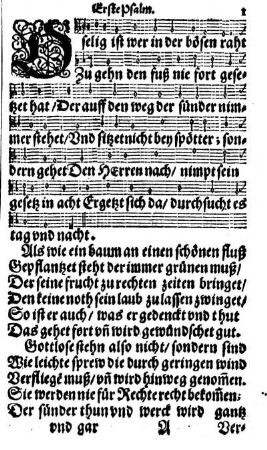 Erste Psalm. 1
O selig ist wer in der bösen raht
Zu gehn den fuß nie fort gese-
tzet hat/Der auff den weg der sünder nim-
mer stehet/Vnd sitzet nicht bey spötter; son-
dern gehet Den HErren nach/nimpt sein
gesetz in acht Ergetzt sich da/durchsucht es
tag vnd nacht.
Als wie ein baum an einen schönen fluß
Gepflantzet steht der immer grünen muß/
Der seine frucht zu rechten zeiten bringet/
Den keine noth sein laub zu lassen zwinget/
So ist er auch/was er gedenckt vnd thut
Das gehet fort vñ wird gewündschet gut.
Gottlose stehn also nicht/sondern sind
Wie leichte sprew die durch geringen wind
Verfliegē muß/vñ wird hinweg genom̃en.
Sie werden nie für Rechte recht bekom̃en;
Der sünder thun vnd werck wird gantz
vnd gar A Ver-